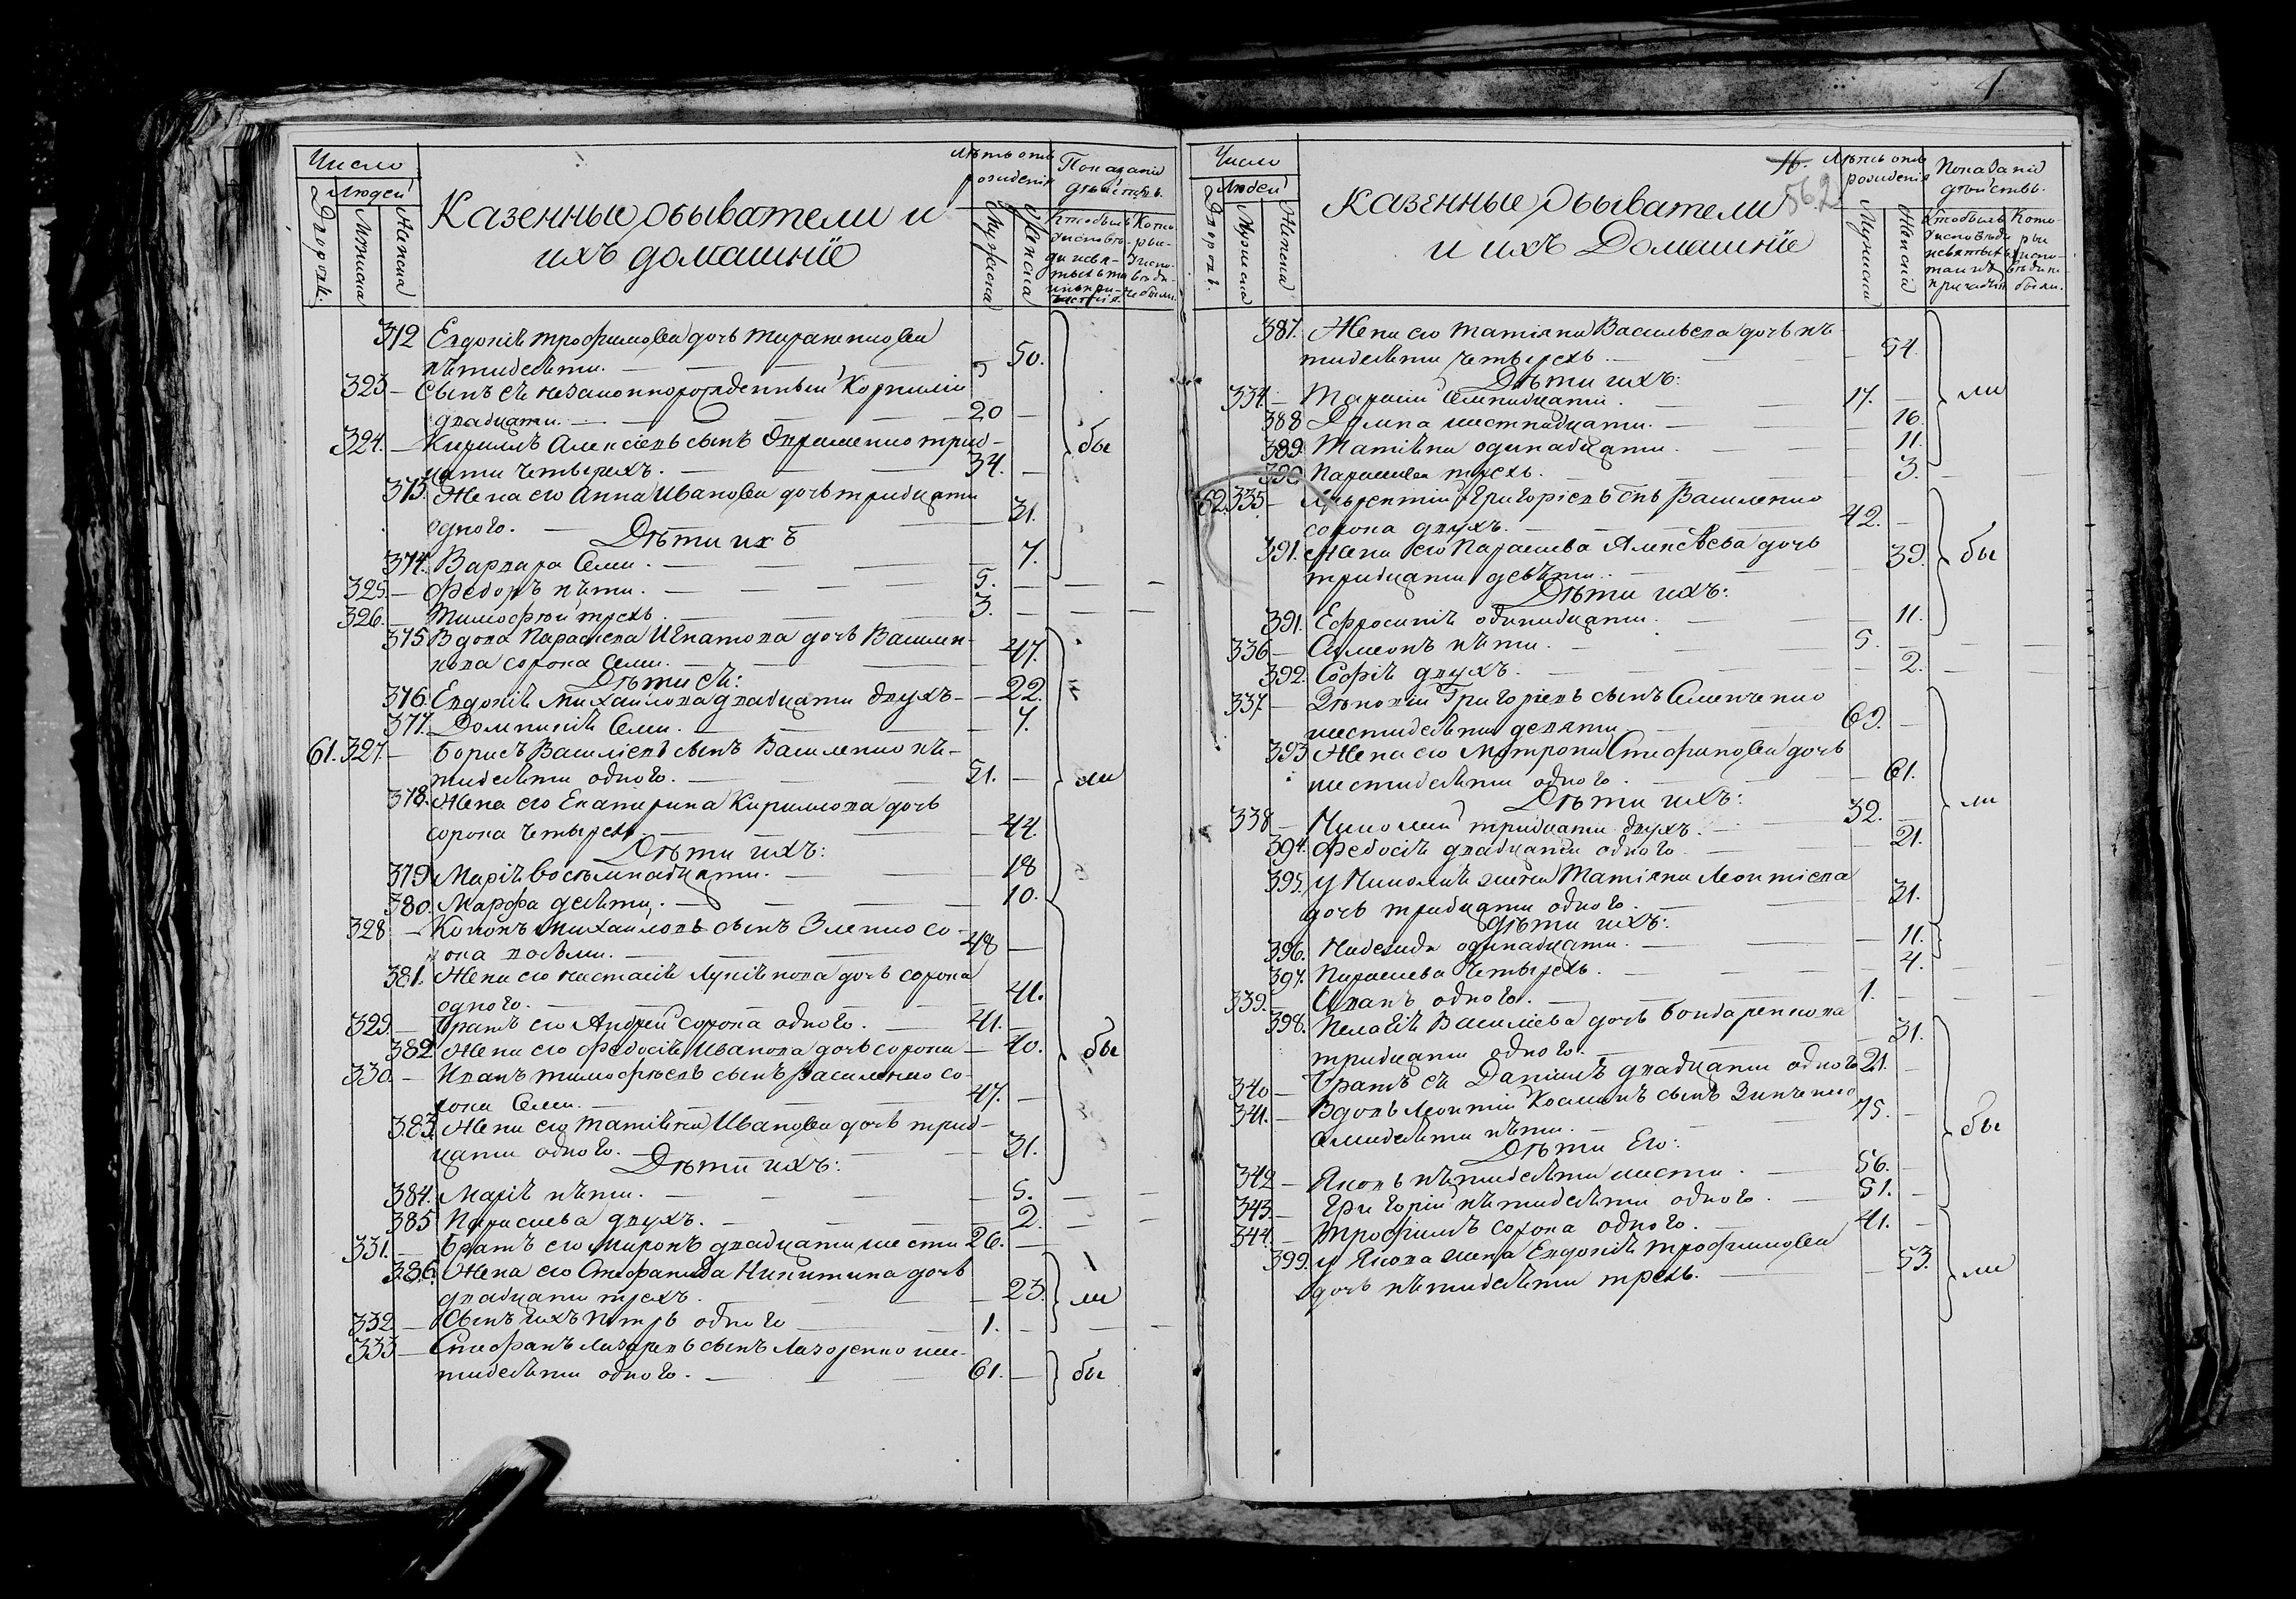 Число
Людей
Дворовъ.
Мужеска
Женска
Казенные обыватели и
ихъ домашніе
Лѣтъ отъ
рожденія
Мужеска
Женска
Показаніе
дѣйствъ.
372 Евдокія Трофимова дочь
пятидесяти. — 50.
323 — Сынъ ея незаконнорожденный Корнилій
двадцати. — 20 —
324. — Кириллъ Алексѣевъ сынъ трид-
цати четырехъ. — 34. —
бы
373. Жена его Анна Иванова дочь тридцати
одного. — 31.
Дѣти ихъ
374. Варвара Семи. — 7.
325. — Федоръ пяти. — 5. —
326. — Тимофей трехъ. — 3. —
375 Вдова Параскева Игнатова дочь Василен-
кова сорока семи. — 47.
Дѣти ея:
376. Евдокія Михайлова двадцати двухъ — 22.
377. Домникія Семи. — 7.
61. 327. — Борисъ Василіевъ сынъ Василенко пя-
тидесяти одного. — 51. —
ли
378. Жена его Екатерина Кириллова дочь
сорока четырехъ. — 44.
Дѣти ихъ:
379. Марія восемнадцати. — 18
380. Марфа десяти. — 10.
328 — Кононъ Михайловъ сынъ Зленко со-
рока восьми. — 48 —
381. Жена его Настасія дочь сорока
одного. — 41.
329. — Братъ его Андрей сорока одного. — 41. —
382. Жена его Феодосія Иванова дочь сорока — 40.
бы
330. — Иванъ Тимофѣевъ сынъ Василенко со-
рока Семи. — 47. —
383. Жена его Татіана Иванова дочь трид-
цати одного. — 31.
Дѣти ихъ:
384. Марія пяти. — 5.
385 Параскева двухъ. — 2.
331. — Братъ его Миронъ двадцати шести 26. —
386. Жена его Стефанида Никитина дочь
двадцати трехъ. — 23.
ли
332 — Сынъ ихъ Петръ одного — 1. —
333 — Стефанъ Лазаревъ сынъ Лазоренко шес-
тидесяти одного. — 61. —
бы
Число
Людей
Дворовъ.
Мужеска
Женска
Казенные Обыватели
и ихъ Домашніе
16.
562
Лѣтъ отъ
рожденія
Мужеска
Женска
Показаніе
дѣйствъ.
387. Жена его Татіана Васильева дочь пя-
тидесяти четырехъ. — 54.
Дѣти ихъ:
334. — Тарасій Семнадцати. — 17. —
ли
388 Домна шестнадцати. — 16.
389. Татіана одинадцати. — 11.
390. Параскева трехъ. — 3.
62. 335 — Лаврентій Григоріевъ сынъ Василенко
сорока двухъ. — 42. —
391. Жена его Параскева Алексѣева дочь
тридцати девяти. — 39.
бы
Дѣти ихъ:
391. Ефросинія одинадцати. — 11.
336 — Симеонъ пяти. — 5. —
392. Софія двухъ. — 2.
337 — Григоріевъ сынъ Семенченко
шестидесяти девяти — 69. —
393 Жена его Матрона Стефанова дочь
шестидесяти одного. — 61.
Дѣти ихъ:
338 — Николай тридцати двухъ. — 32. —
ли
394. Феодосія двадцати одного — 21.
395. У Николая жена Татіана Леонтіева
дочь тридцати одного. — 31.
Дѣти ихъ:
396. Надежда одинадцати. — 11.
397. Параскева Четырехъ. — 4.
339. — Иванъ одного. — 1. —
398. Пелагія Василіева дочь Бондаренкова
тридцати одного. — 31.
340 — Братъ ея Даніилъ двадцати одного 21. —
341. — Вдовъ Леонтій Косминъ сынъ Зинченко
семидесяти пяти. — 75. —
бы
Дѣти Его:
342 — Яковъ пятидесяти шести. — 56. —
343. — Григорій пятидесяти одного. — 51. —
344. — Трофимъ сорока одного. — 41. —
399. У Якова жена Евдокія Трофимова
дочь пятидесяти трехъ. — 53.
ли